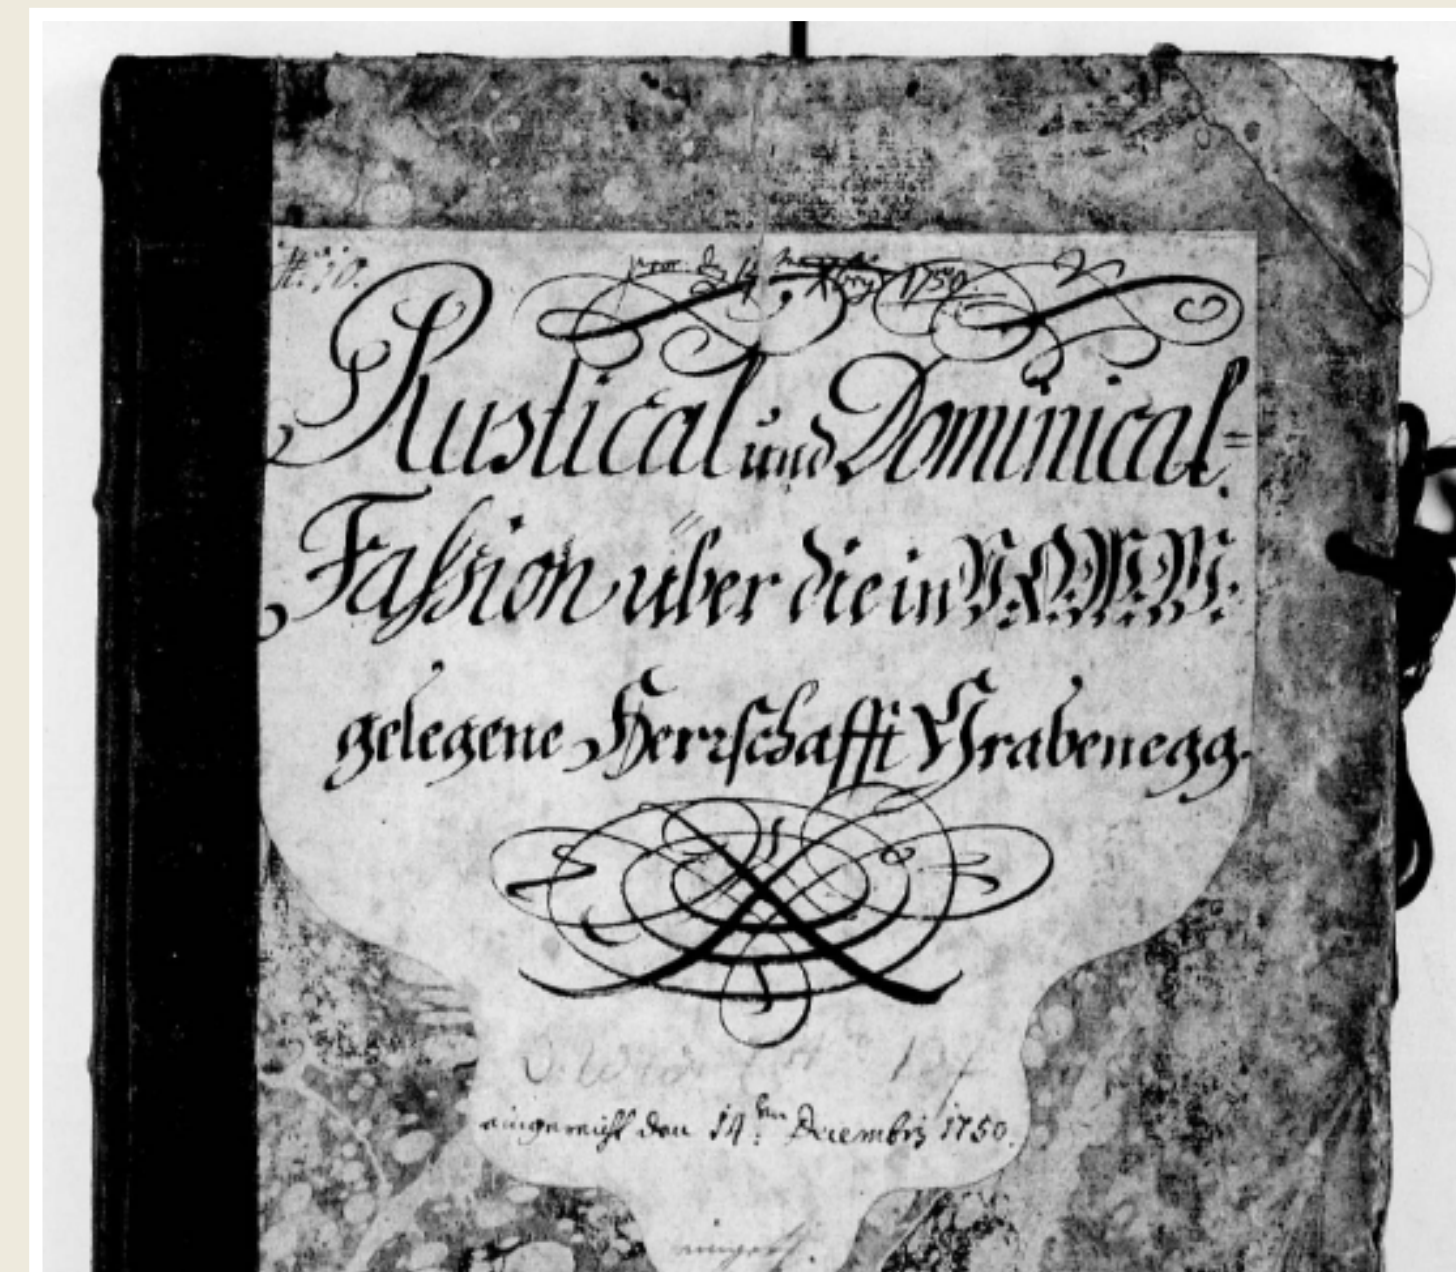 N: 10.
1750.
Rustical und Dominical=
Fassion über die in V.O.M.M.
gelegene Herrschafft Grabenegg.
eingereicht den 14ten Decembris 1750.